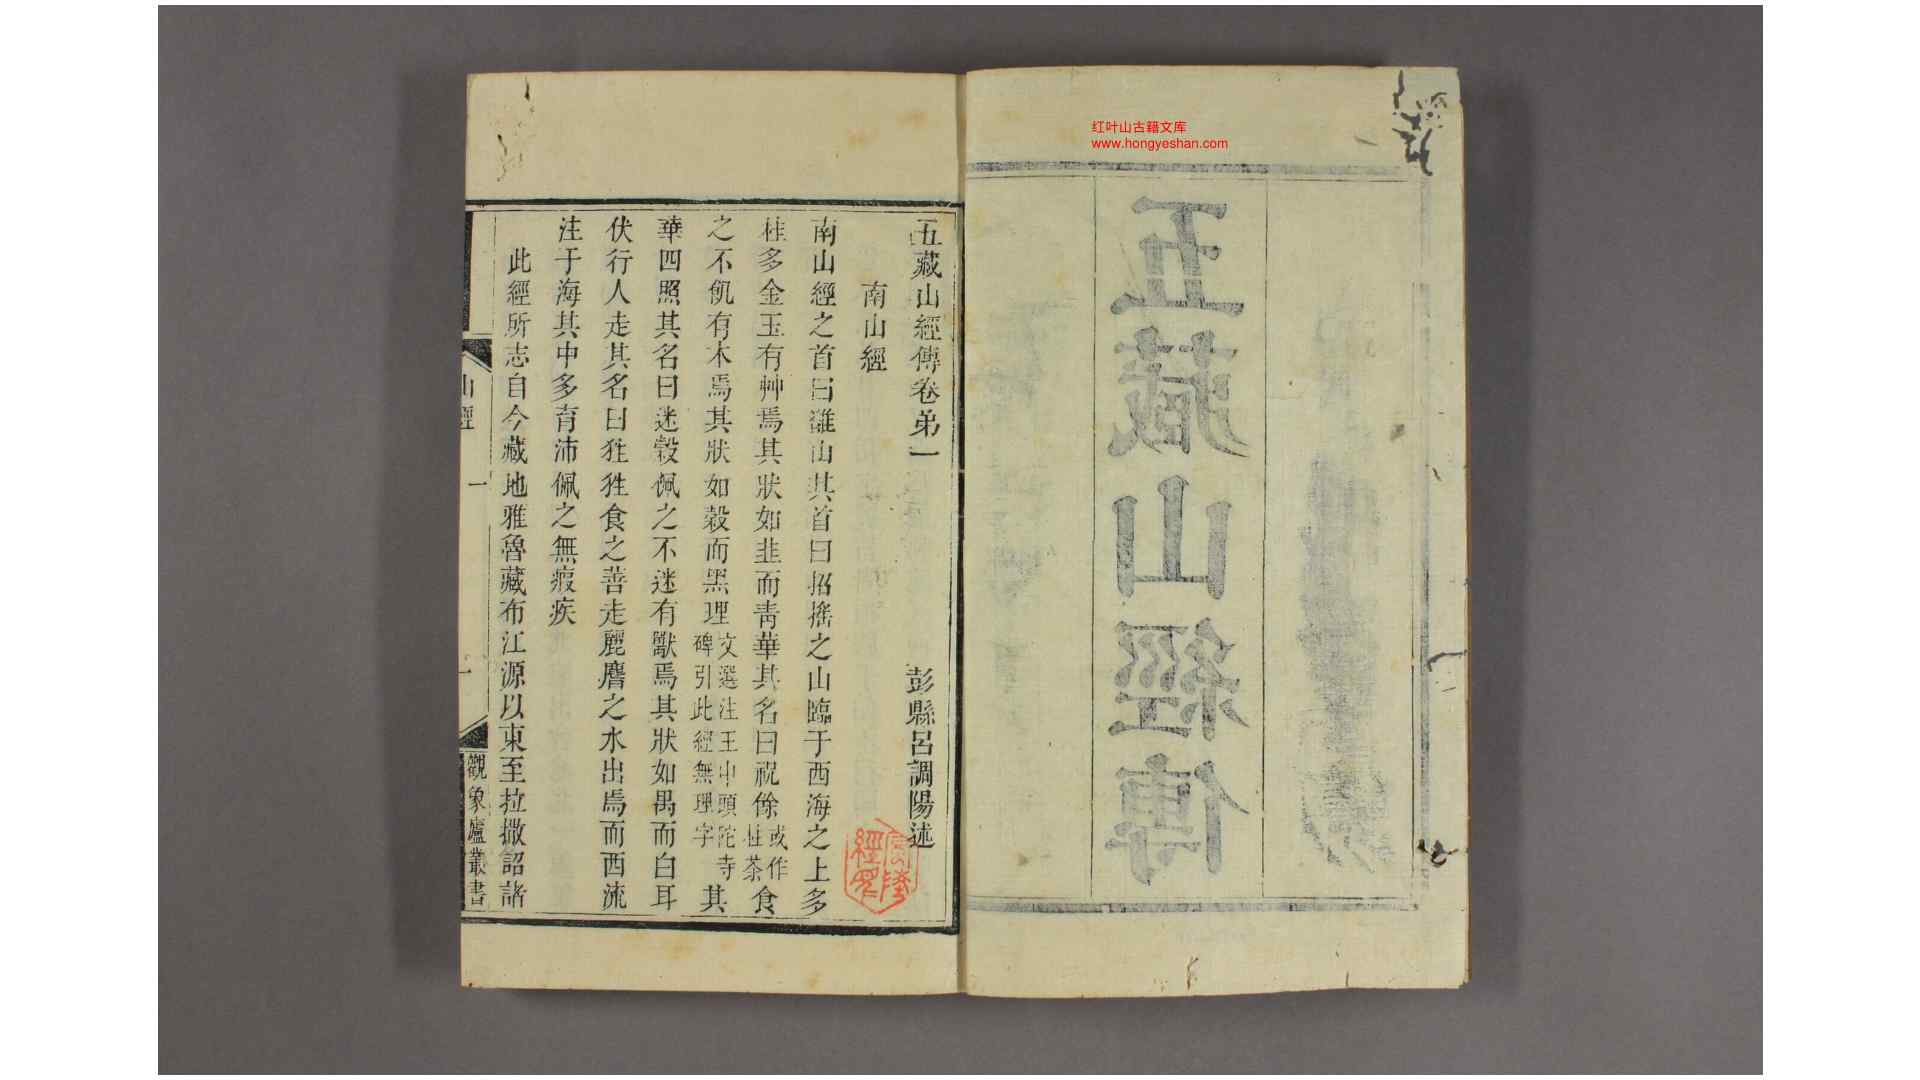 红叶山古籍文库
www.hongyeshan.com
五藏山經傳
五藏山經傳卷弟一
彭縣呂調陽述
南山經
南山經之首曰䧿山其首曰招搖之山臨于西海之上多
桂多金玉有艸焉其狀如韭而青華其名曰祝餘或作桂荼食
之不飢有木焉其狀如榖而黑理文選注王屮頭陀寺碑引此經無理字其
華四照其名曰迷榖佩之不迷有獸焉其狀如禺而白耳
伏行人走其名曰狌狌食之善走麗麐之水出焉而西流
注于海其中多育沛佩之無瘕疾
此經所志自今藏地雅魯藏布江源以東至拉撒詔諸
山經
一
觀象廬叢書